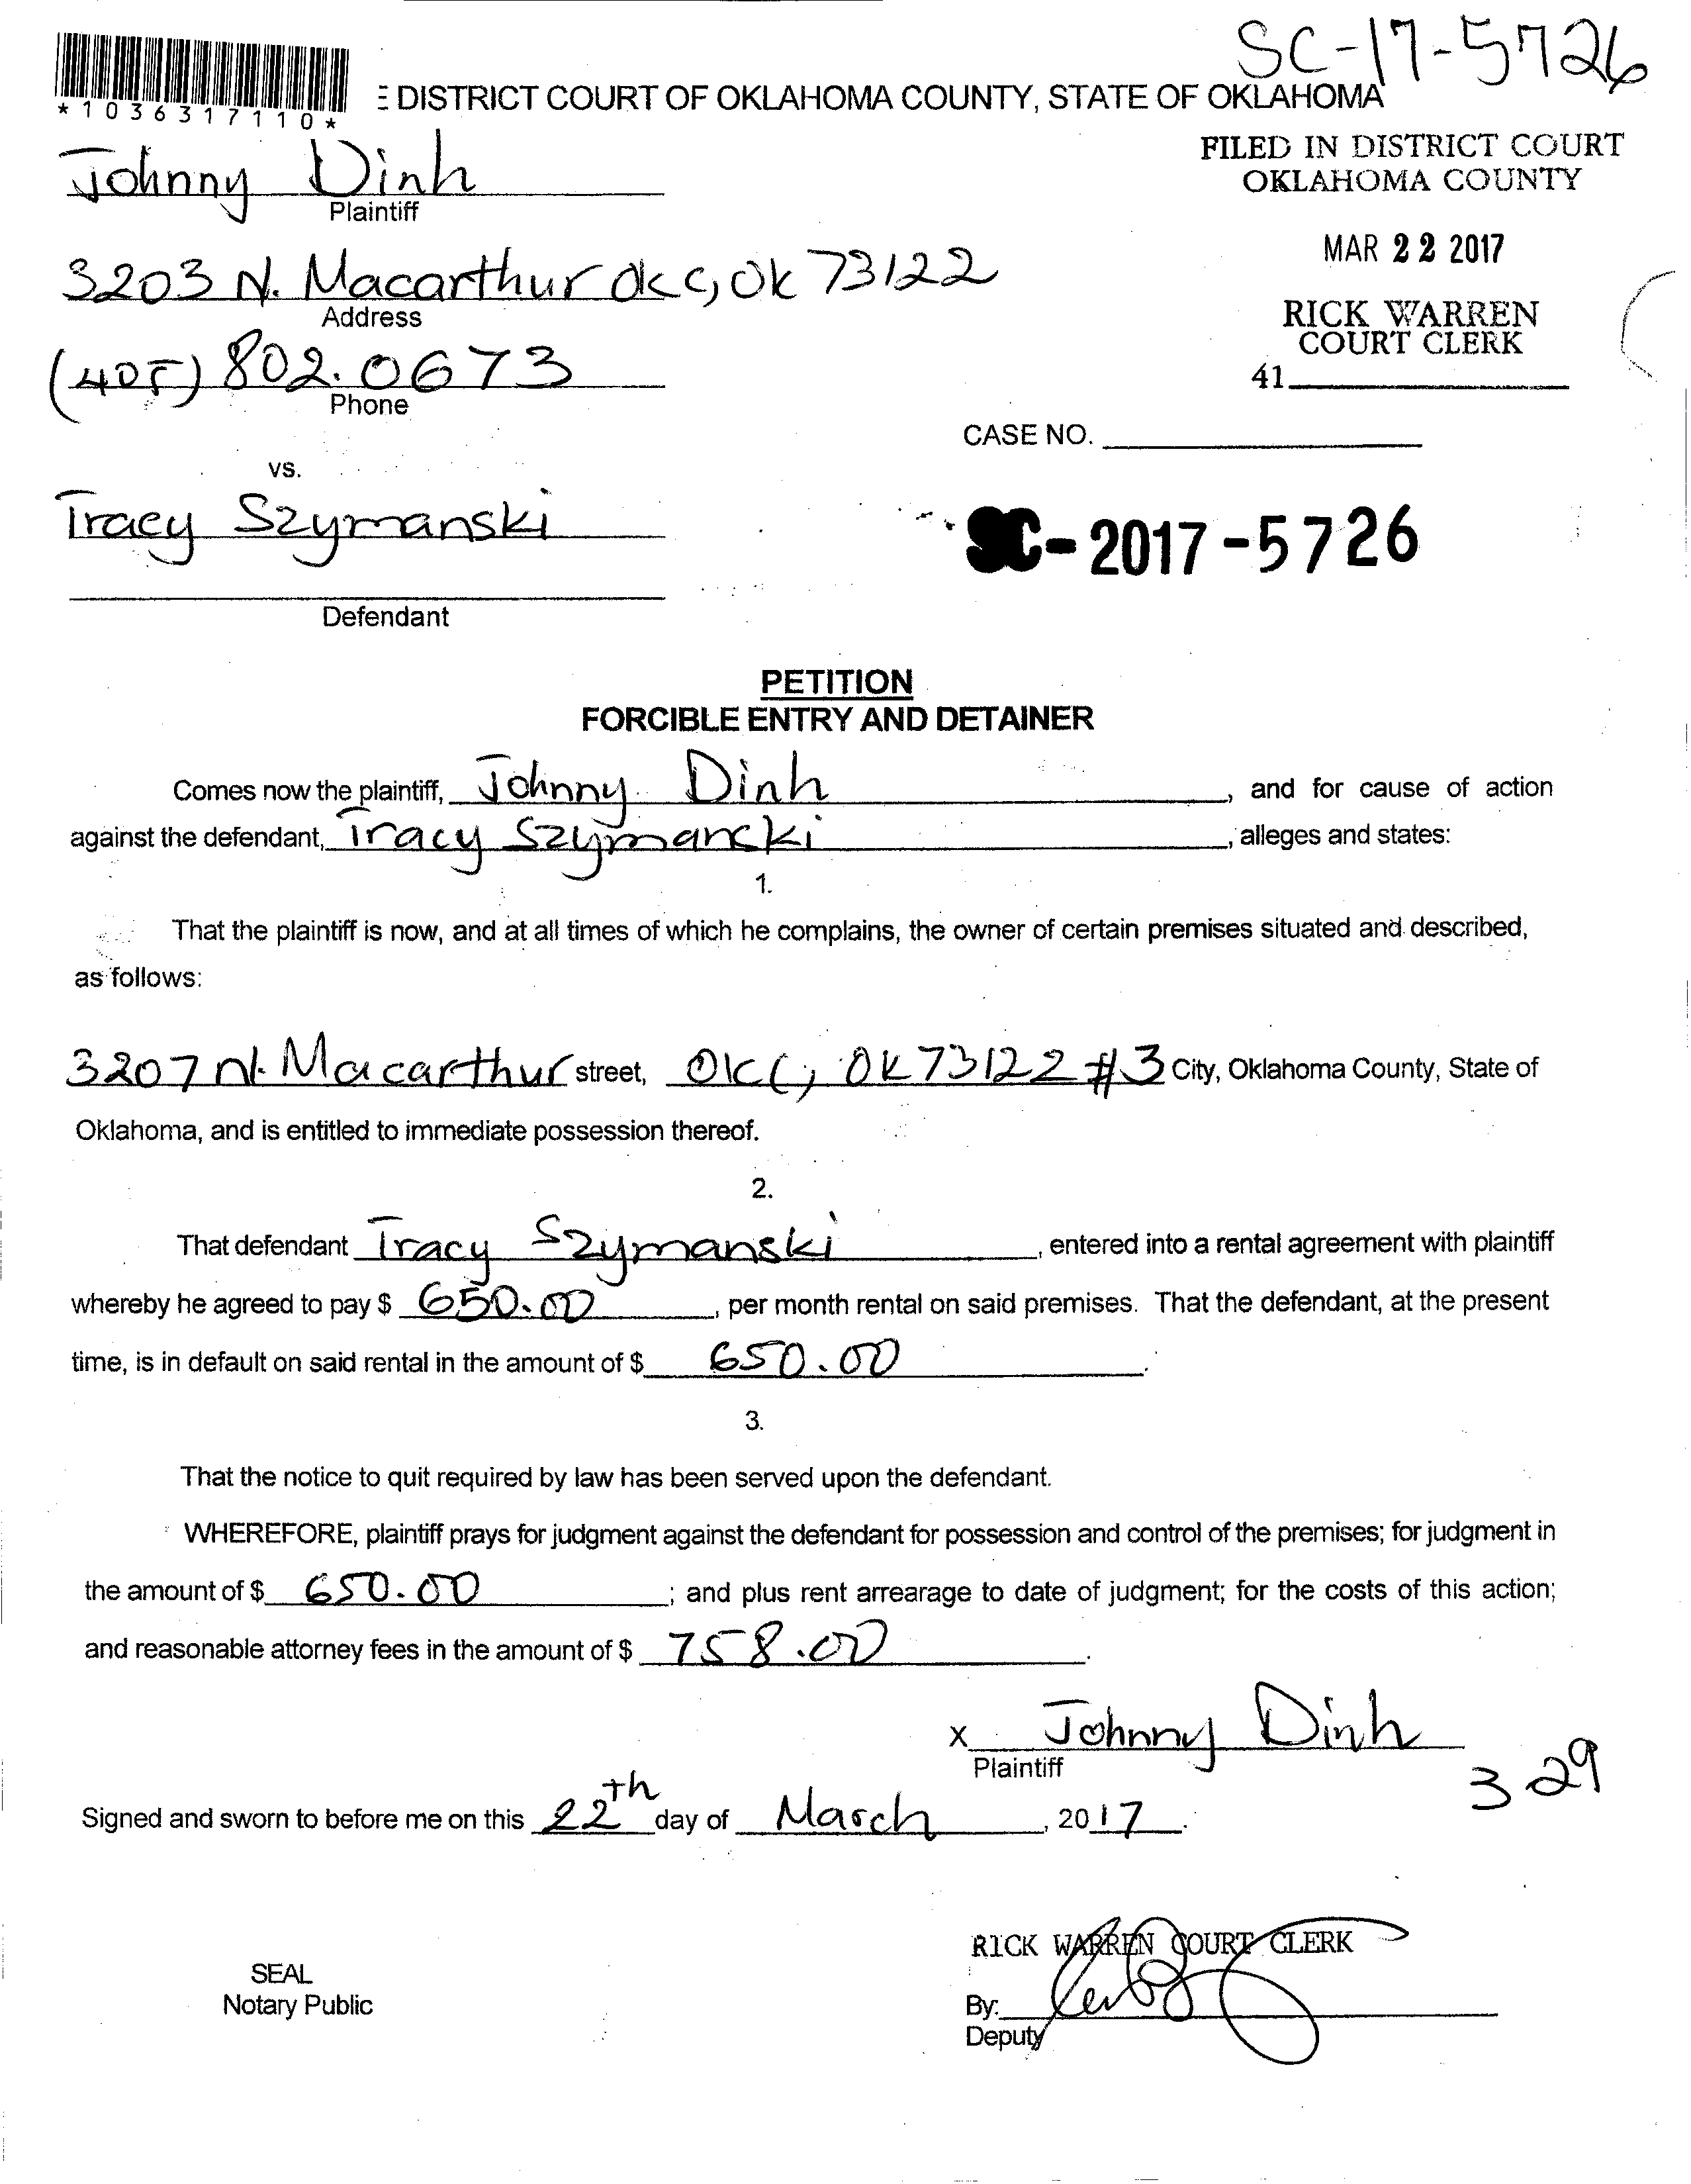 SC-17-5726
*1036317110*
E DISTRICT COURT OF OKLAHOMA COUNTY, STATE OF OKLAHOMA
FILED IN DISTRICT COURT
OKLAHOMA COUNTY
Johnny Dinh
Plaintiff
MAR 22 2017
3203 N. Macarthur OKC, OK 73122
Address
RICK WARREN
COURT CLERK
(405) 802.0673
Phone
41
CASE NO.
vs.
Tracy Szymanski
SC-2017-5726
Defendant
PETITION
FORCIBLE ENTRY AND DETAINER
Comes now the plaintiff, Johnny Dinh, and for cause of action
against the defendant, Tracy Szymancki, alleges and states:
1.
That the plaintiff is now, and at all times of which he complains, the owner of certain premises situated and described,
as follows:
3207 N. Macarthur street, OKC, OK 73122 #3 City, Oklahoma County, State of
Oklahoma, and is entitled to immediate possession thereof.
2.
That defendant Tracy Szymanski, entered into a rental agreement with plaintiff
whereby he agreed to pay $ 650.00, per month rental on said premises. That the defendant, at the present
time, is in default on said rental in the amount of $ 650.00.
3.
That the notice to quit required by law has been served upon the defendant.
WHEREFORE, plaintiff prays for judgment against the defendant for possession and control of the premises; for judgment in
the amount of $ 650.00; and plus rent arrearage to date of judgment; for the costs of this action;
and reasonable attorney fees in the amount of $ 758.00.
X Johnny Dinh
Plaintiff
3 29
Signed and sworn to before me on this 22th day of March, 2017.
RICK WARREN COURT CLERK
SEAL
Notary Public
By:
Deputy